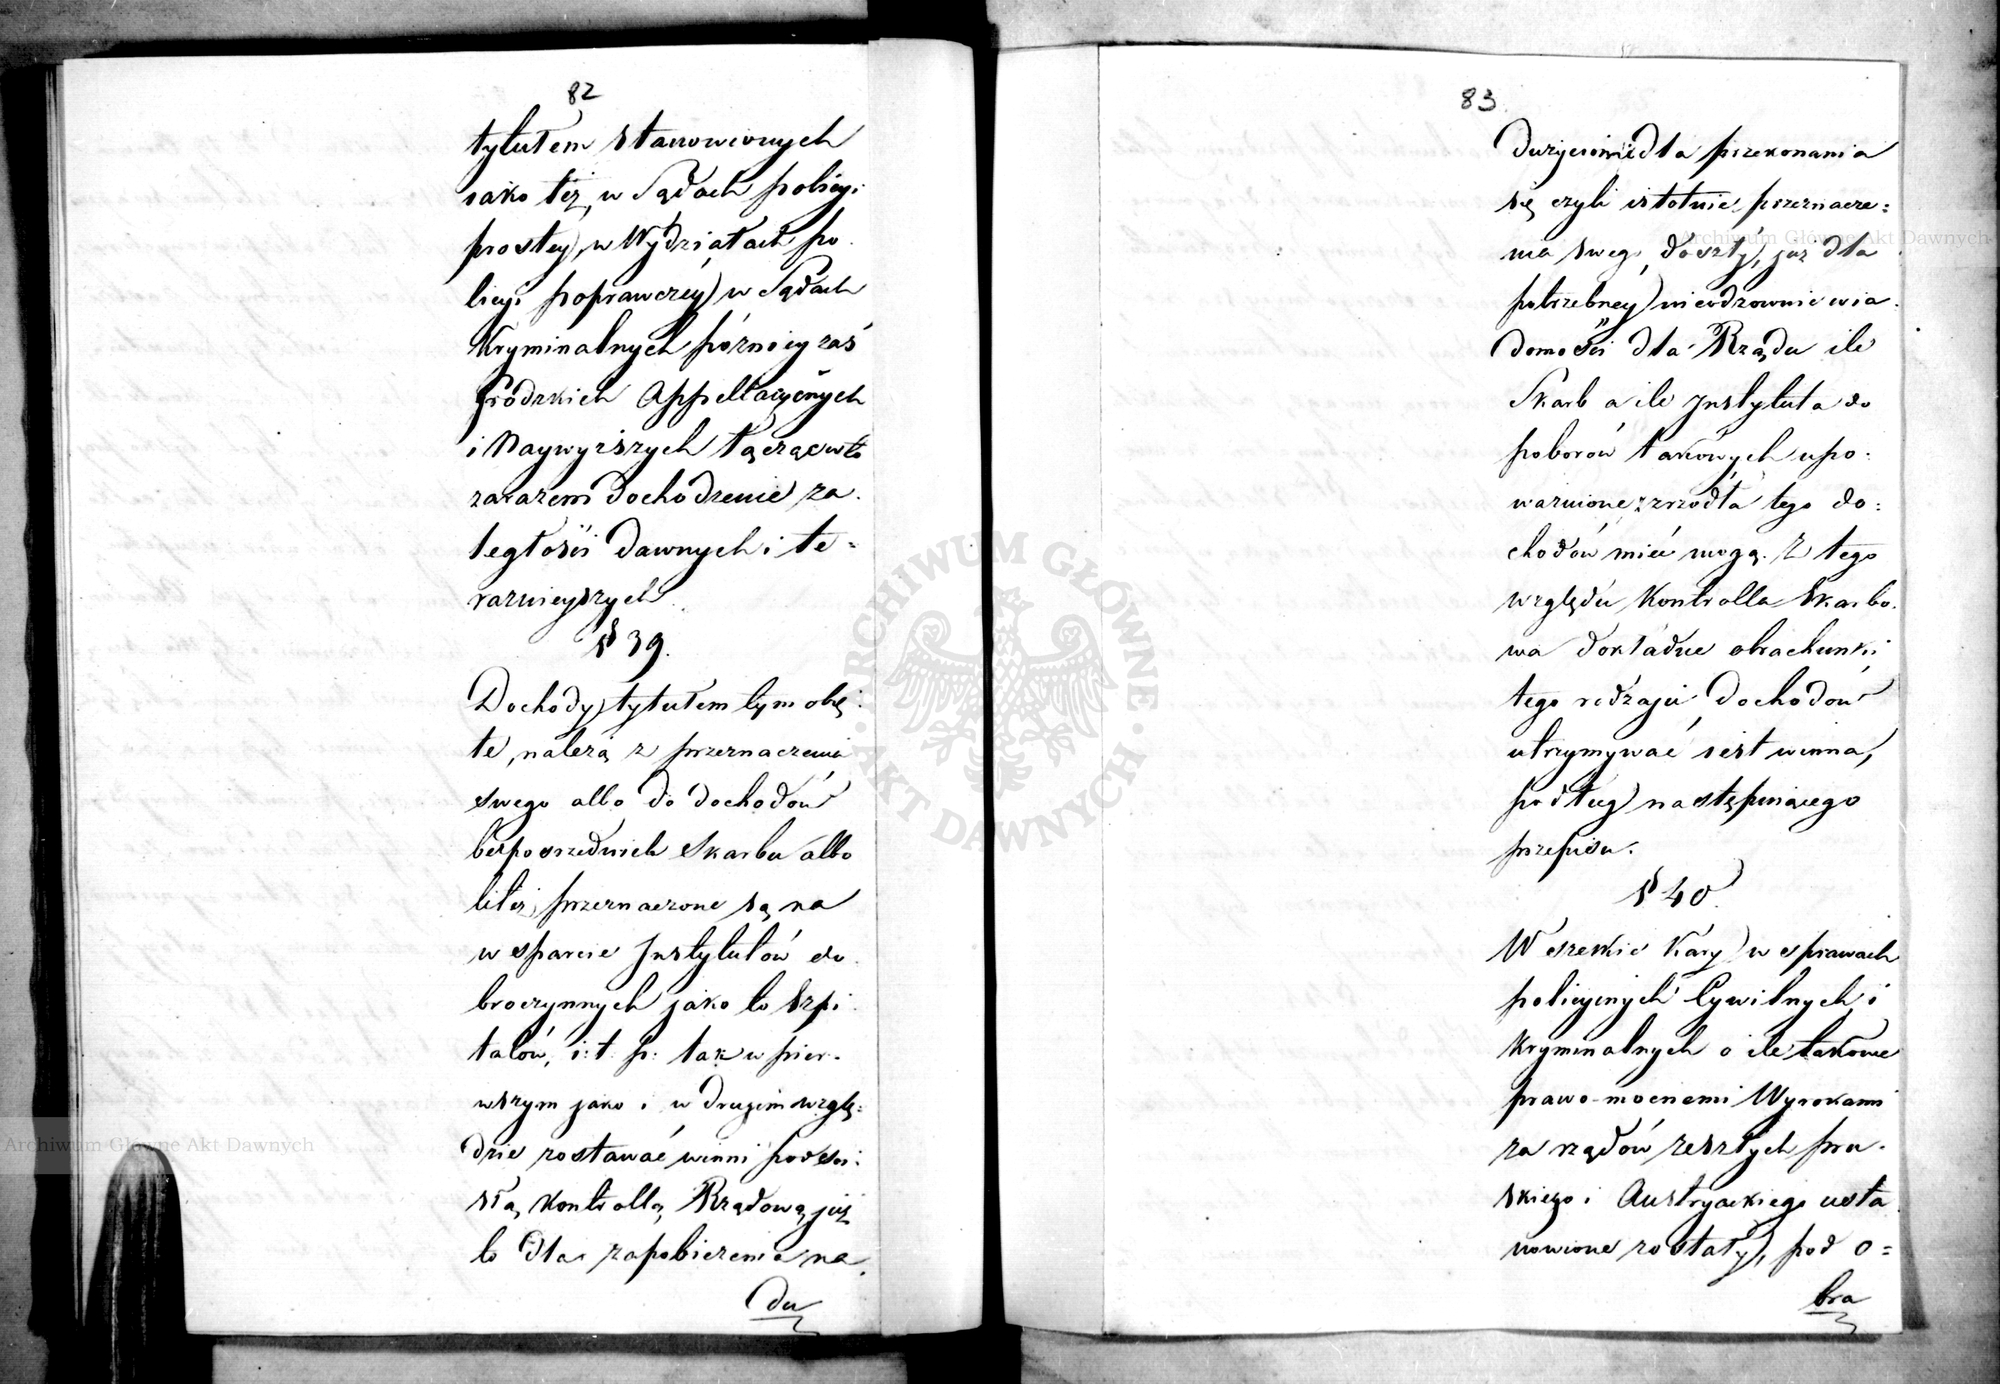 82
tytułem stanowionych
jako też, w Sądach policyi
prostey, w Wydziałach po-
licyi poprawczey w Sądach
Kryminalnych późniey zaś
Grodzkich Appellacyinych
i Naywyższych łącząc w to
zarazem dochodzenie za-
ległości dawnych i te-
razniejszych.
§ 39.
Dochody tytułem tym obję-
te, należą z przeznaczenia
swego albo do dochodów
bezpośrednich Skarbu albo
też przeznaczone są na
wsparcie Instytutów do-
broczynnych jako to Szpi-
talów, i: t: p: tak w pier-
wszym jako i w drugim wzglę-
dzie zostawać winni pod ści-
słą kontrollą Rządową już
to dla zapobieżenia na-
du
83
dużyciom dla przekonania
się czyli istotnie przeznacze-
nia swego doszły, już dla
potrzebney nieodzownie wia-
domości dla Rządu ile
Skarb a ile Instytuta do
poborów takowych upo-
ważnione z zrzodła tego do-
chodów mieć mogą. Z tego
względu Kontrolla Skarbo-
wa dokładne obrachunki
tego rodzaju dochodów
utrzymywać jest winna,
podług następującego
przepisu.
§ 40.
Wszelkie Kary w sprawach
policyinych Cywilnych i
Kryminalnych o ile takowe
prawo-mocnemi Wyrokami
za rządów zeszłych pru-
skiego i Austryackiego usta
nowione zostały, pod o=
bra
ARCHIWUM GŁÓWNE AKT DAWNYCH
Archiwum Główne Akt Dawnych
Archiwum Główne Akt Dawnych